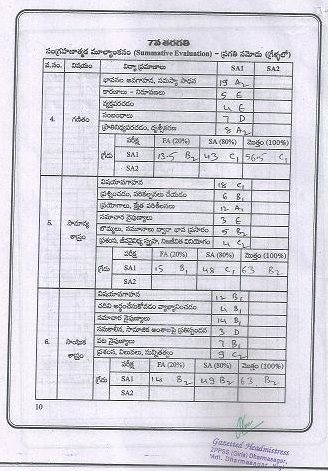 7వ తరగతి
సంగ్రహణాత్మక మూల్యాంకనం (Summative Evaluation) – ప్రగతి నమోదు (గ్రేడ్లలో)
వ.సం. విషయం విద్యా ప్రమాణాలు SA1 SA2
భావనల అవగాహన, సమస్యా సాధన 19 A2
కారణాలు - నిరూపణలు 5 E
వ్యక్తపరచడం 4 E
4. గణితం సంబంధాలు 7 D
ప్రాతినిధ్యపరచడం, దృశ్యీకరణ 8 A2
పరీక్ష FA (20%) SA (80%) మొత్తం (100%)
గ్రేడు SA1 13.5 B2 43 C1 56.5 C1
SA2
విషయావగాహన 18 C1
ప్రశ్నించడం, పరికల్పనలు చేయడం 6 B1
ప్రయోగాలు, క్షేత్ర పరిశీలనలు 12 A1
సమాచార నైపుణ్యాలు 3 E
5. సామాన్య శాస్త్రం బొమ్మలు, నమూనాల ద్వారా భావ ప్రసారం 5 B2
ప్రశంస, జీవవైవిధ్య స్పృహ, నిజజీవిత వినియోగం 4 C2
పరీక్ష FA (20%) SA (80%) మొత్తం (100%)
గ్రేడు SA1 15 B1 48 C1 63 B2
SA2
విషయావగాహన 12 B1
చదివి అర్థంచేసుకోవడం వ్యాఖ్యానించడం 4 B1
సమాచార నైపుణ్యాలు 14 B1
సమకాలీన, సామాజిక అంశాలపై ప్రతిస్పందన 3 D
6. సాంఘిక శాస్త్రం పట నైపుణ్యాలు 7 B1
ప్రశంస, విలువలు, సున్నితత్వం 9 C2
పరీక్ష FA (20%) SA (80%) మొత్తం (100%)
గ్రేడు SA1 14 B2 49 B2 63 B2
SA2
10
Gazetted Headmistress
ZPPSS (Girls) Dharmasagar,
Mdl. Dharmasagar,